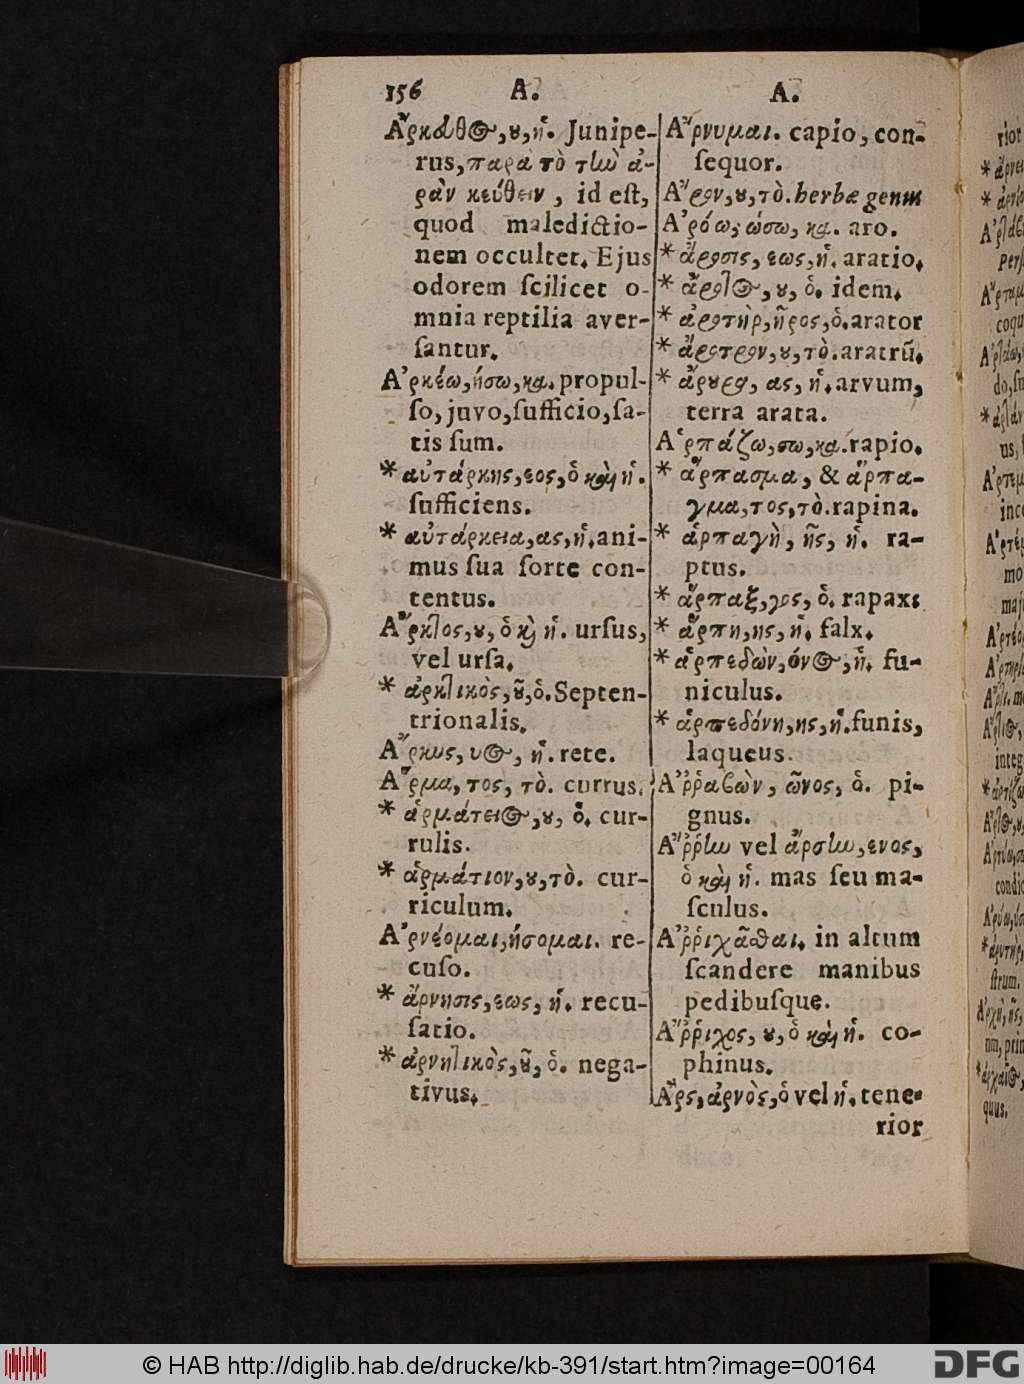 156 A. A.
Ἄρκευθος, ου, ἡ. Junipe-
rus, παρὰ τὸ τὴν ἀ-
ρὰν κεύθειν, id eſt,
quod maledictio-
nem occultet. Ejus
odorem ſcilicet o-
mnia reptilia aver-
ſantur.
Ἀρκέω, ήσω, κα. propul-
ſo, juvo, ſufficio, ſa-
tis ſum.
* αὐτάρκης, εος, ὁ καὶ ἡ.
ſufficiens.
* αὐτάρκεια, ας, ἡ. ani-
mus ſua ſorte con-
tentus.
Ἄρκτος, ου, ὁ κὶ ἡ. urſus,
vel urſa.
* ἀρκτικὸς, οῦ, ὁ. Septen-
trionalis.
Ἄρκυς, υος, ἡ. rete.
Ἅρμα, τος, τὸ. currus.
* ἁρμάτειος, ου, ὁ. cur-
rulis.
* ἁρμάτιον, ου, τὸ. cur-
riculum.
Ἀρνέομαι, ήσομαι. re-
cuſo.
* ἄρνησις, εως, ἡ. recu-
ſatio.
* ἀρνητικὸς, οῦ, ὁ. nega-
tivus.
Ἄρνυμαι. capio, con-
ſequor.
Ἄρον, ου, τὸ. herbæ genus
Ἀρόω, ώσω, κα. aro.
* ἄροσις, εως, ἡ. aratio.
* ἄροτος, ου, ὁ. idem.
* ἀροτὴρ, ῆρος, ὁ. arator
* ἄροτρον, ου, τὸ. aratrũ.
* ἄρουρα, ας, ἡ. arvum,
terra arata.
Ἁρπάζω, σω, κα. rapio.
* ἅρπασμα, & ἅρπα-
γμα, τος, τὸ. rapina.
* ἁρπαγὴ, ῆς, ἡ. ra-
ptus.
* ἅρπαξ, γος, ὁ. rapax.
* ἅρπη, ης, ἡ. falx.
* ἁρπεδὼν, όνος, ἡ. fu-
niculus.
* ἁρπεδόνη, ης, ἡ. funis,
laqueus.
Ἀῤῥαβὼν, ῶνος, ὁ. pi-
gnus.
Ἄῤῥην vel ἄρσην, ενος,
ὁ καὶ ἡ. mas ſeu ma-
ſculus.
Ἀῤῥιχᾶσθαι. in altum
ſcandere manibus
pedibuſque.
Ἄῤῥιχος, ου, ὁ καὶ ἡ. co-
phinus.
Ἂρς, ἀρνὸς, ὁ vel ἡ. tene-
rior
© HAB http://diglib.hab.de/drucke/kb-391/start.htm?image=00164
DFG